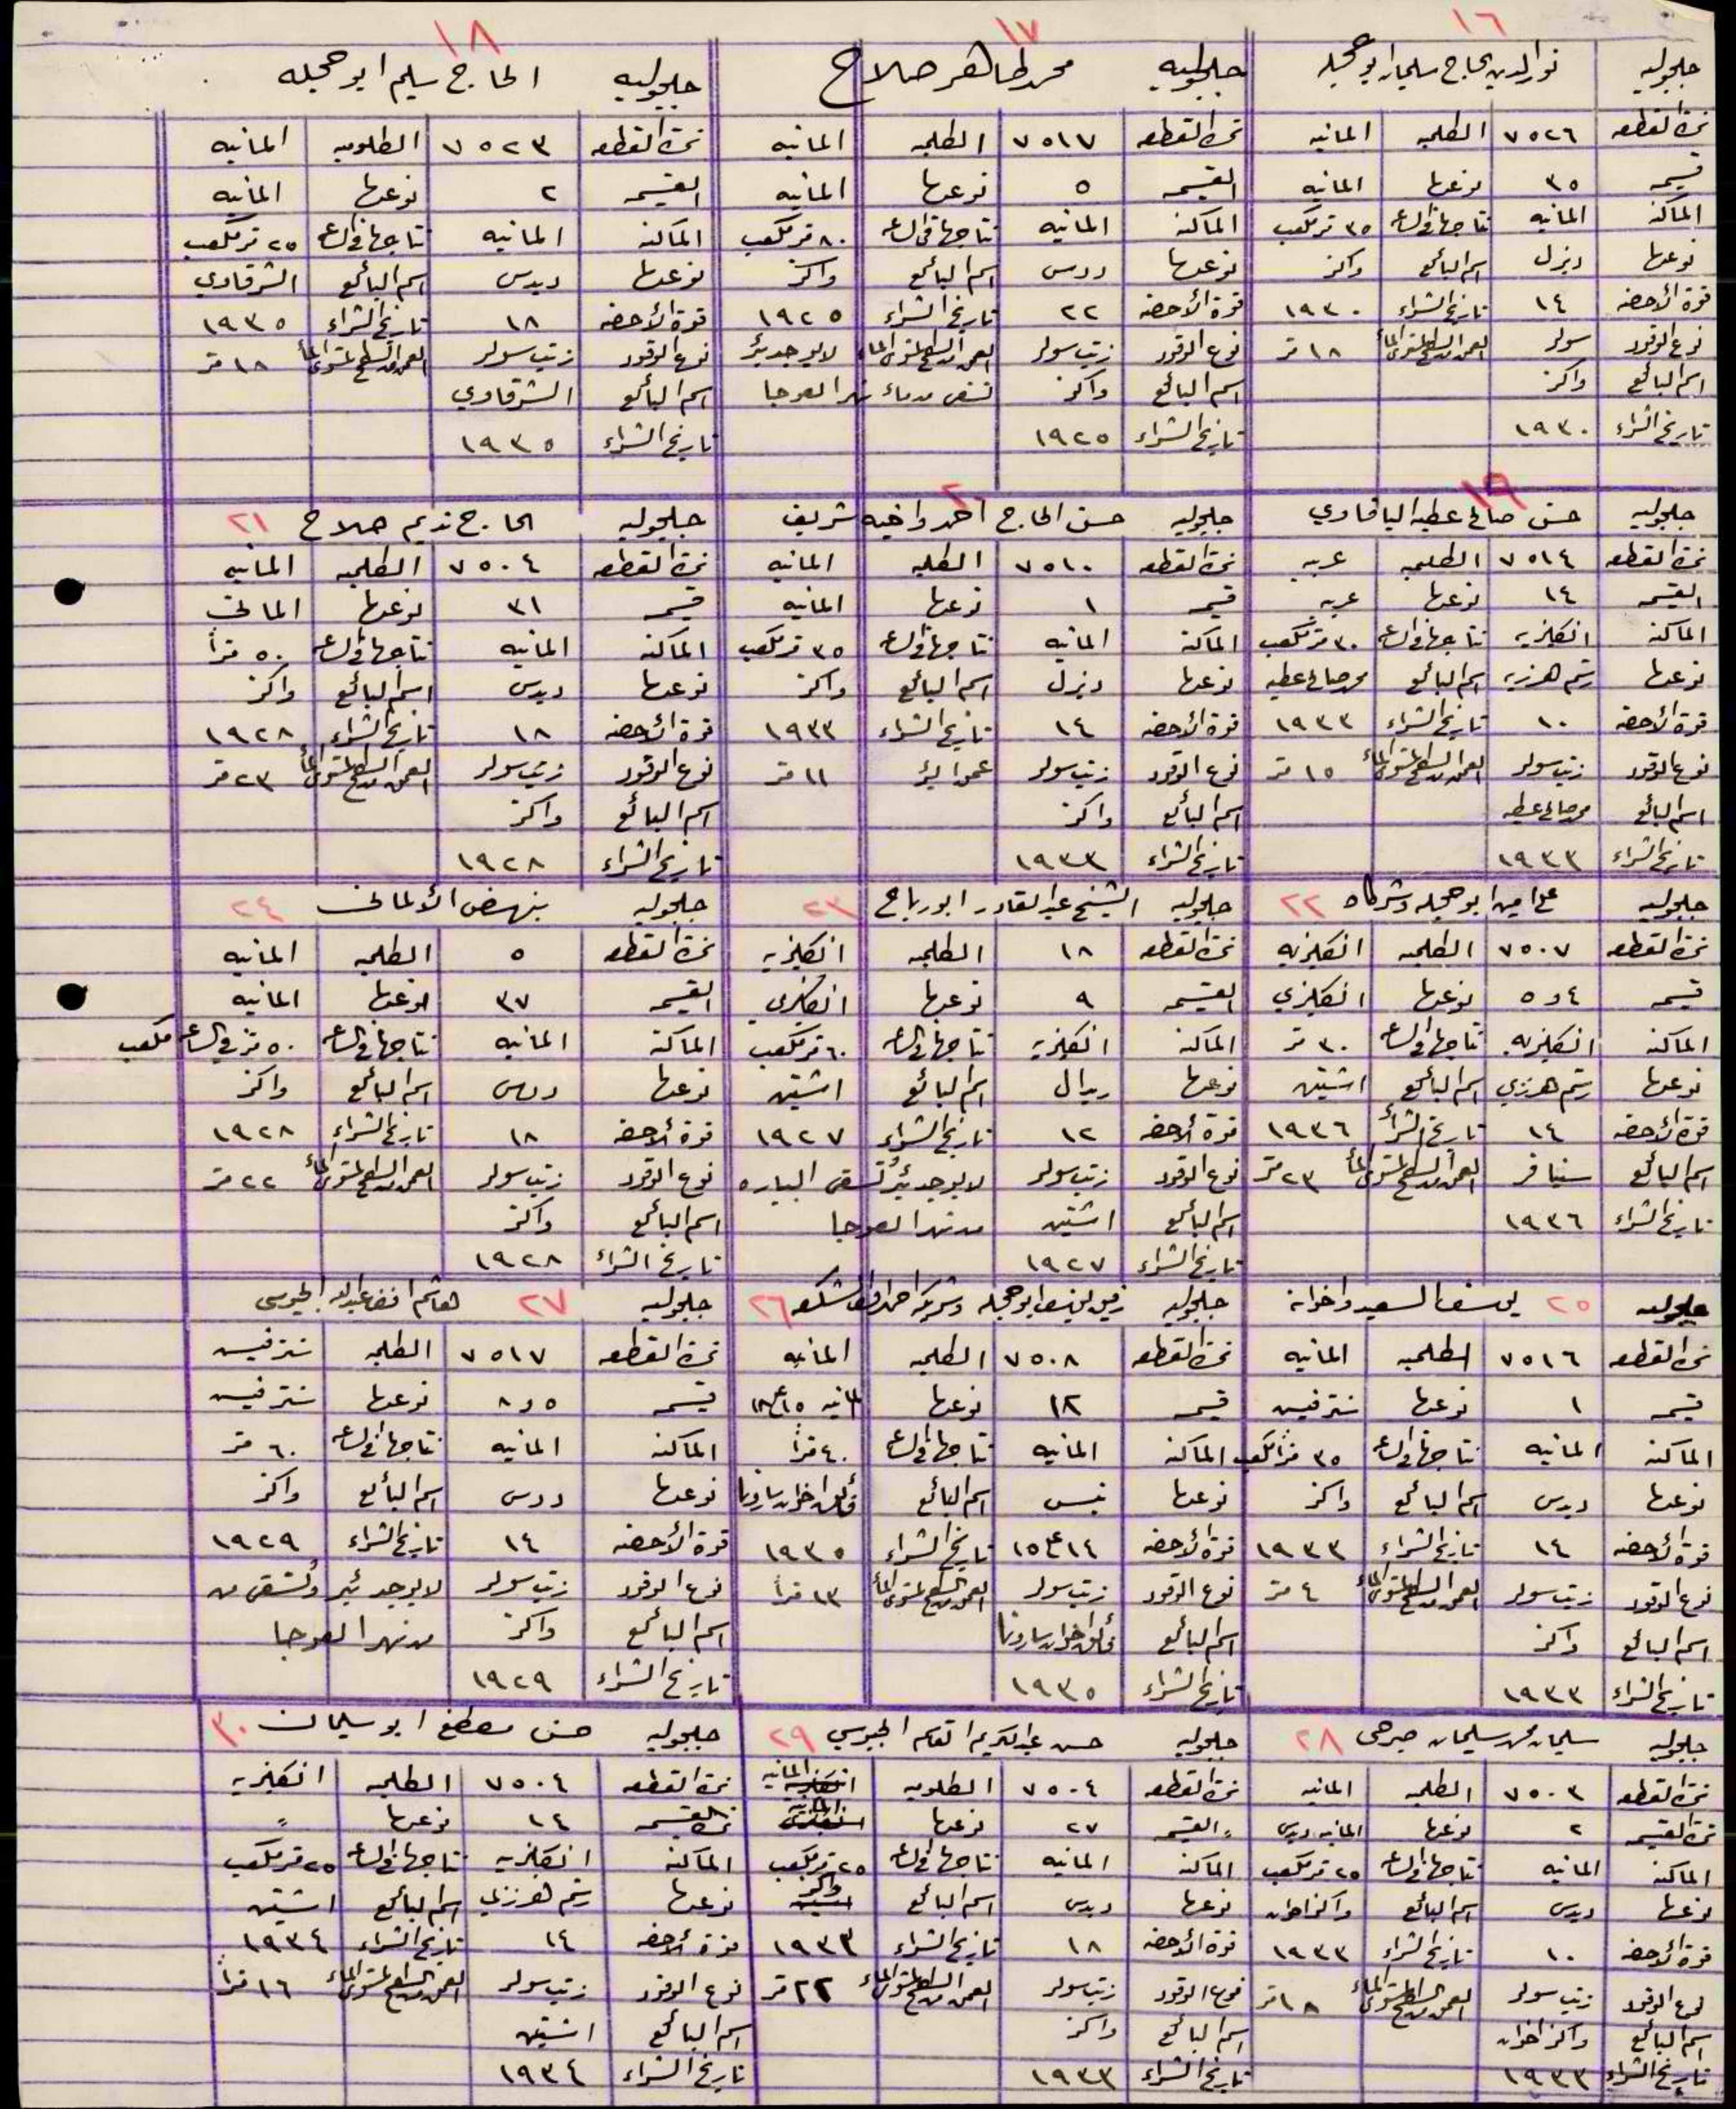 ١٦
جلجوليه نور الدين الحاج سليمان ابو حجله
نمرة القطعه ٧٥٢٦ الطلمبه المانيه
قسيمه ٣٥ نوعها المانيه
الماكنه المانيه نتاجها في الساعه ٣٥ متر مكعب
نوعها ديزل اسم البائع واكز
قوة الأحصنه ١٤ تاريخ الشراء ١٩٣٠
نوع الوقود سولر العمق من السطح لمستوى الماء ١٨ متر
اسم البائع واكز
تاريخ الشراء ١٩٣٠
١٧
جلجوليه محمد طاهر صلاح
نمرة القطعه ٧٥١٧ الطلمبه المانيه
القسيمه ٥ نوعها المانيه
الماكنه المانيه نتاجها في الساعه ٨٠ متر مكعب
نوعها ددس اسم البائع واكز
قوة الأحصنه ٢٢ تاريخ الشراء ١٩٢٥
نوع الوقود زيت سولر العمق من السطح لمستوى الماء لا يوجد بئر
اسم البائع واكز تسقى من ماء نهر العوجا
تاريخ الشراء ١٩٢٥
١٨
جلجوليه الحاج سليم ابو حجله
نمرة القطعه ٧٥٢٣ الطلومبه المانيه
القسيمه ٢ نوعها المانيه
الماكنه المانيه نتاجها في الساعه ٢٥ متر مكعب
نوعها ديدس اسم البائع الشرقاوي
قوة الأحصنه ١٨ تاريخ الشراء ١٩٣٥
نوع الوقود زيت سولر العمق من السطح لمستوى الماء ١٨ متر
اسم البائع الشرقاوي
تاريخ الشراء ١٩٣٥
١٩
جلجوليه حسن صالح عطيه اليافاوي
نمرة القطعه ٧٥١٤ الطلمبه عربيه
القسيمه ١٤ نوعها عربيه
الماكنه انكليزيه نتاجها في الساعه ٣٠ متر مكعب
نوعها رستم هرنزبه اسم البائع محمد صالح عطيه
قوة الأحصنه ١٠ تاريخ الشراء ١٩٣٣
نوع الوقود زيت سولر العمق من السطح لمستوى الماء ١٥ متر
اسم البائع محمد صالح عطيه
تاريخ الشراء ١٩٣٣
٢٠
جلجوليه حسن الحاج احمد واخيه شريف
نمرة القطعه ٧٥١٠ الطلمبه المانيه
قسيمه ١ نوعها المانيه
الماكنه المانيه نتاجها في الساعه ٣٥ متر مكعب
نوعها ديزل اسم البائع واكز
قوة الأحصنه ١٤ تاريخ الشراء ١٩٣٣
نوع الوقود زيت سولر عمق البئر ١١ متر
اسم البائع واكز
تاريخ الشراء ١٩٣٣
جلجوليه الحاج نديم صلاح ٢١
نمرة القطعه ٧٥٠٤ الطلمبه المانيه
قسيمه ٣١ نوعها الماني
الماكنه المانيه نتاجها في الساعه ٥٠ مترا
نوعها ديدس اسم البائع واكز
قوة الأحصنه ١٨ تاريخ الشراء ١٩٢٨
نوع الوقود زيت سولر العمق من السطح لمستوى الماء ٢٣ متر
اسم البائع واكز
تاريخ الشراء ١٩٢٨
جلجوليه علي امين ابو حجله وشركاه ٢٢
نمرة القطعه ٧٥٠٧ الطلمبه انكليزيه
قسيمه ٤ و ٥ نوعها انكليزي
الماكنه انكليزيه نتاجها في الساعه ٣٠ متر
نوعها رستم هرنزبي اسم البائع اشتين
قوة الأحصنه ١٤ تاريخ الشراء ١٩٣٦
اسم البائع العمق من السطح لمستوى الماء ٢٣ متر
تاريخ الشراء ١٩٣٦
جلجوليه الشيخ عبد القادر ابو رباح ٢٣
نمرة القطعه ١٨ الطلمبه انكليزيه
القسيمه ٩ نوعها انكليزي
الماكنه انكليزيه نتاجها في الساعه ٦٠ متر مكعب
نوعها ريدال اسم البائع اشتين
قوة الأحصنه ١٢ تاريخ الشراء ١٩٢٧
نوع الوقود زيت سولر لا يوجد بئر وتسقى البياره
اسم البائع اشتين من نهر العوجا
تاريخ الشراء ١٩٢٧
جلجوليه بنهيض الألماني ٢٤
نمرة القطعه ٥ الطلمبه المانيه
القسيمه ٣٧ نوعها المانيه
الماكنه المانيه نتاجها في الساعه ٥٠ متر في الساعه مكعب
نوعها ددس اسم البائع واكز
قوة الأحصنه ١٨ تاريخ الشراء ١٩٢٨
نوع الوقود زيت سولر العمق من السطح لمستوى الماء ٢٢ متر
اسم البائع واكز
تاريخ الشراء ١٩٢٨
جلجوليه ٢٥ يوسف السعيد واخوانه
نمرة القطعه ٧٥١٦ الطلمبه المانيه
قسيمه ١ نوعها سنترفيش
الماكنه المانيه نتاجها في الساعه ٣٥ مترا مكعب
نوعها ديدس اسم البائع واكز
قوة الأحصنه ١٤ تاريخ الشراء ١٩٣٣
نوع الوقود زيت سولر العمق من السطح لمستوى الماء ٤ متر
اسم البائع واكز
تاريخ الشراء ١٩٣٣
جلجوليه رفيق يوسف ابو حجله وشريكه احمد ٢٦
نمرة القطعه ٧٥٠٨ الطلمبه المانيه
قسيمه ١٢ نوعها المانيه
الماكنه المانيه نتاجها في الساعه ٤٠ مترا
نوعها اسم البائع اخوان سارونا
قوة الأحصنه ١٤ ١٥ تاريخ الشراء ١٩٣٥
نوع الوقود زيت سولر العمق من السطح لمستوى الماء ١٣ مترا
اسم البائع اخوان سارونا
تاريخ الشراء ١٩٣٥
جلجوليه ٢٧ هاشم افندي عبد الله الجيوسي
نمرة القطعه ٧٥١٧ الطلمبه سنترفيش
قسيمه ٥ و ٨ نوعها سنترفيش
الماكنه المانيه نتاجها في الساعه ٦٠ متر
نوعها ددس اسم البائع واكز
قوة الأحصنه ١٤ تاريخ الشراء ١٩٢٩
نوع الوقود زيت سولر لا يوجد بئر وتسقى من
اسم البائع واكز من نهر العوجا
تاريخ الشراء ١٩٢٩
جلجوليه سليمان محمد سليمان صبحي ٢٨
نمرة القطعه ٧٥٠٣ الطلمبه المانيه
نمرة القسيمه ٢ نوعها المانيه ديدس
الماكنه المانيه نتاجها في الساعه ٢٥ متر مكعب
نوعها ديدس اسم البائع واكز اخوان
قوة الأحصنه ١٠ تاريخ الشراء ١٩٣٣
نوع الوقود زيت سولر العمق من السطح لمستوى الماء ١٨ متر
اسم البائع واكز اخوان
تاريخ الشراء ١٩٣٣
جلجوليه حسن عبد الكريم القاسم الجيوسي ٢٩
نمرة القطعه ٧٥٠٤ الطلومبه المانيه
" القسيمه ٢٧ نوعها المانيه
الماكنه المانيه نتاجها في الساعه ٢٥ متر مكعب
نوعها ديدس اسم البائع واكز
قوة الأحصنه ١٨ تاريخ الشراء ١٩٣٣
نوع الوقود زيت سولر العمق من السطح لمستوى الماء ٢٢ متر
اسم البائع واكز
تاريخ الشراء ١٩٣٣
جلجوليه حسن مصطفى ابو سليمان ٣٠
نمرة القطعه ٧٥٠٤ الطلمبه انكليزيه
نمرة القسيمه ١٤ نوعها "
الماكنه انكليزيه نتاجها في الساعه ٢٥ متر مكعب
نوعها رستم هرنزبي اسم البائع اشتين
قوة الأحصنه ١٤ تاريخ الشراء ١٩٣٤
نوع الوقود زيت سولر العمق من السطح لمستوى الماء ١٦ مترا
اسم البائع اشتين
تاريخ الشراء ١٩٣٤